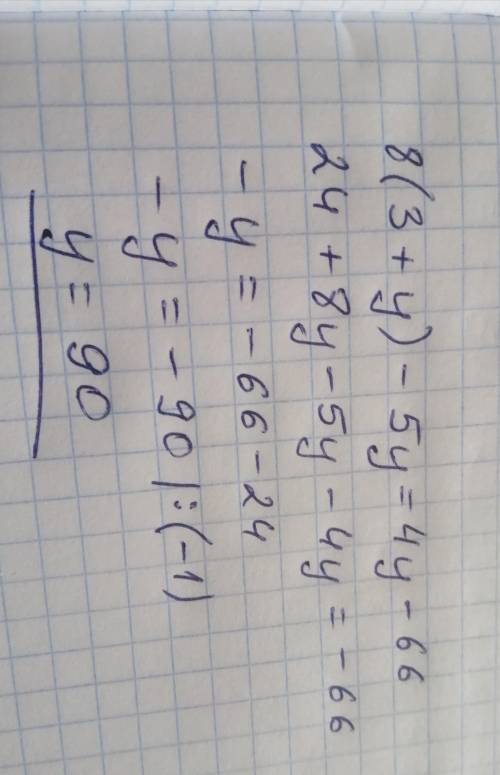 8(3+y)-5y=4y-66
24+8y-5y-4y=-66
-y=-66-24
-y=-90|:(-1)
y=90